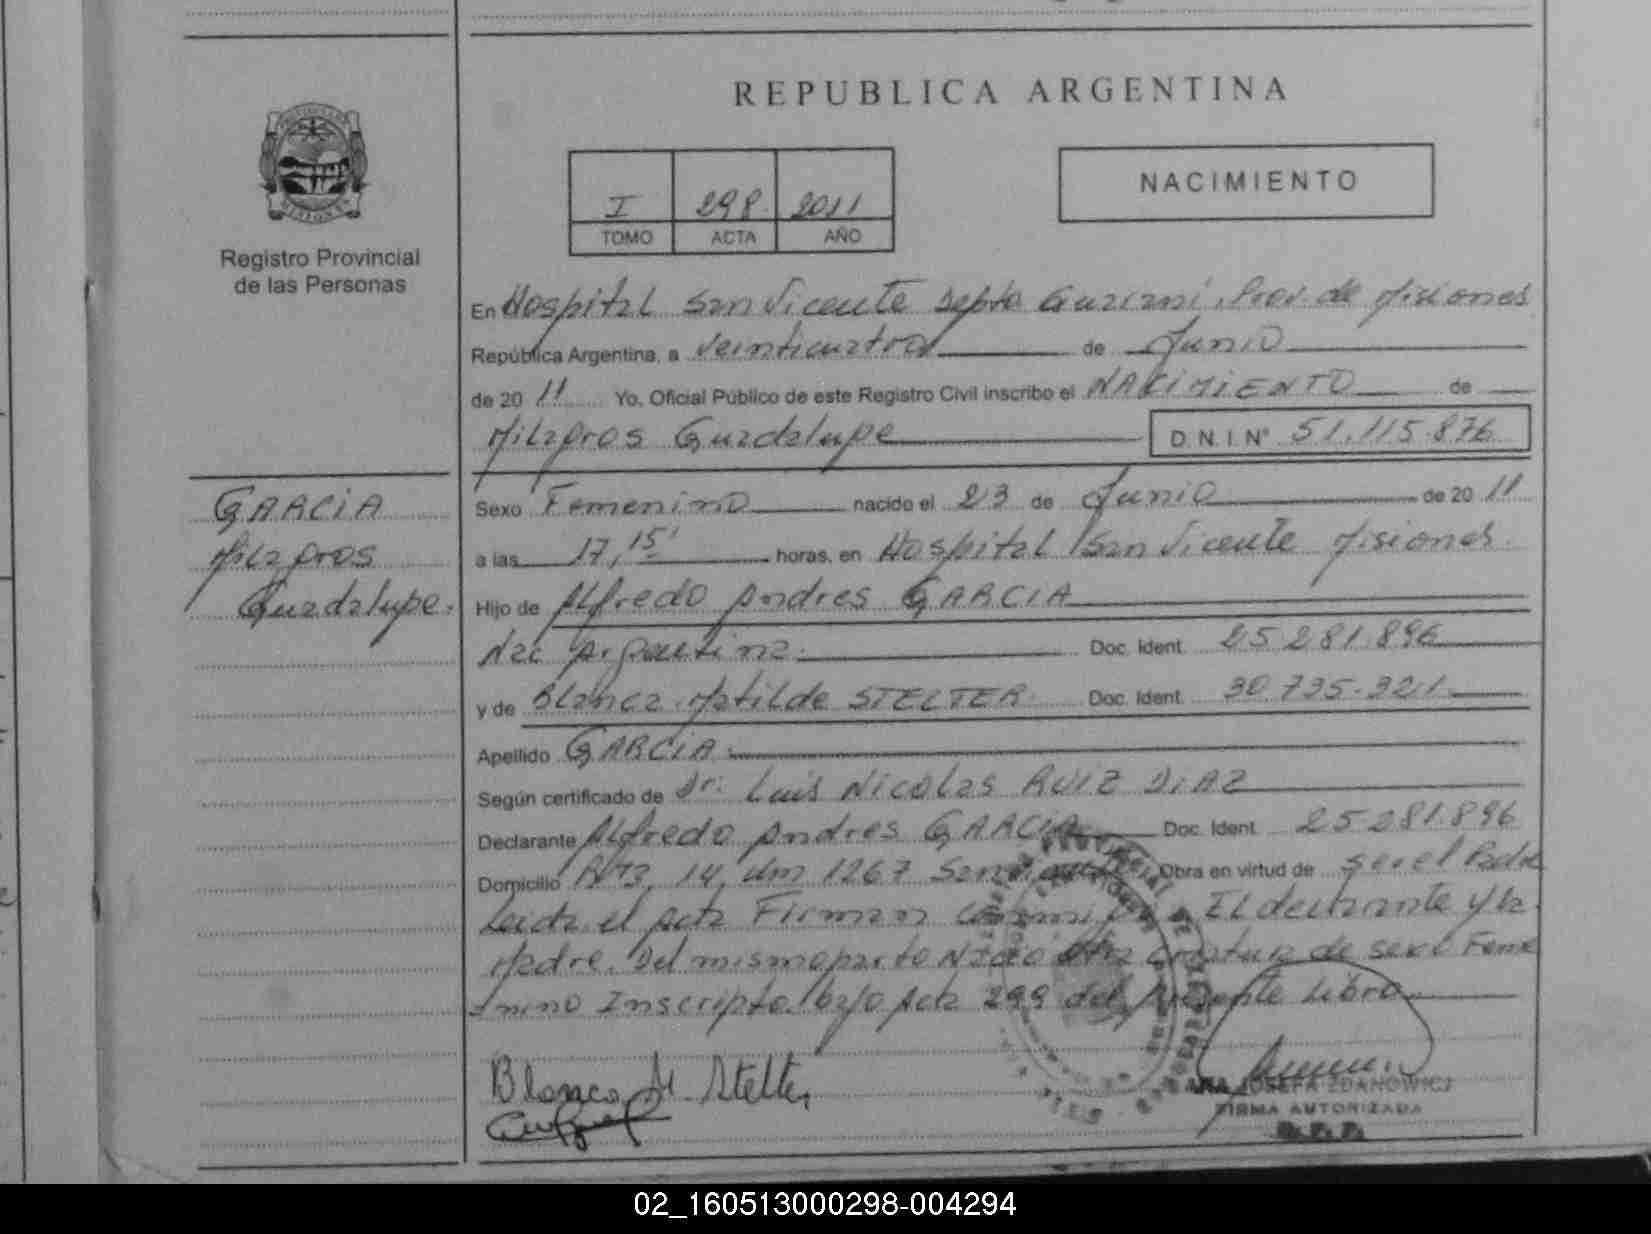 REPUBLICA ARGENTINA
I 298 2011
TOMO ACTA AÑO
NACIMIENTO
Registro Provincial
de las Personas
En Hospital San Vicente Depto Guarani, Prov. de Misiones
República Argentina, a Veinticuatro de Junio
de 2011 Yo, Oficial Público de este Registro Civil inscribo el NACIMIENTO de
Milagros Guadalupe D.N.I.Nº 51.115.876
GARCIA
Milagros
Guadalupe.
Sexo Femenino nacido el 23 de Junio de 2011
a las 17,15' horas, en Hospital San Vicente Misiones.
Hijo de Alfredo Andres GARCIA
Nac Argentina. Doc. Ident. 25.281.896
y de Blanca Matilde STELTER. Doc. Ident. 30.735.321
Apellido GARCIA.
Según certificado de Dr. Luis Nicolas RUIZ DIAZ
Declarante Alfredo Andres GARCIA Doc. Ident. 25.281.896
Domicilio Ruta 14, Km 1267 San Vicente Obra en virtud de ser el Padre
Leida el Acta Firman Conmigo El declarante y la
Madre. Del mismo parto Nacio otra criatura de sexo Feme
nino Inscripta bajo Acta 299 del Presente Libro.
Blanca M. Stelter
ANA JOSEFA ZDANOWICZ
FIRMA AUTORIZADA
R.P.P.
02_160513000298-004294